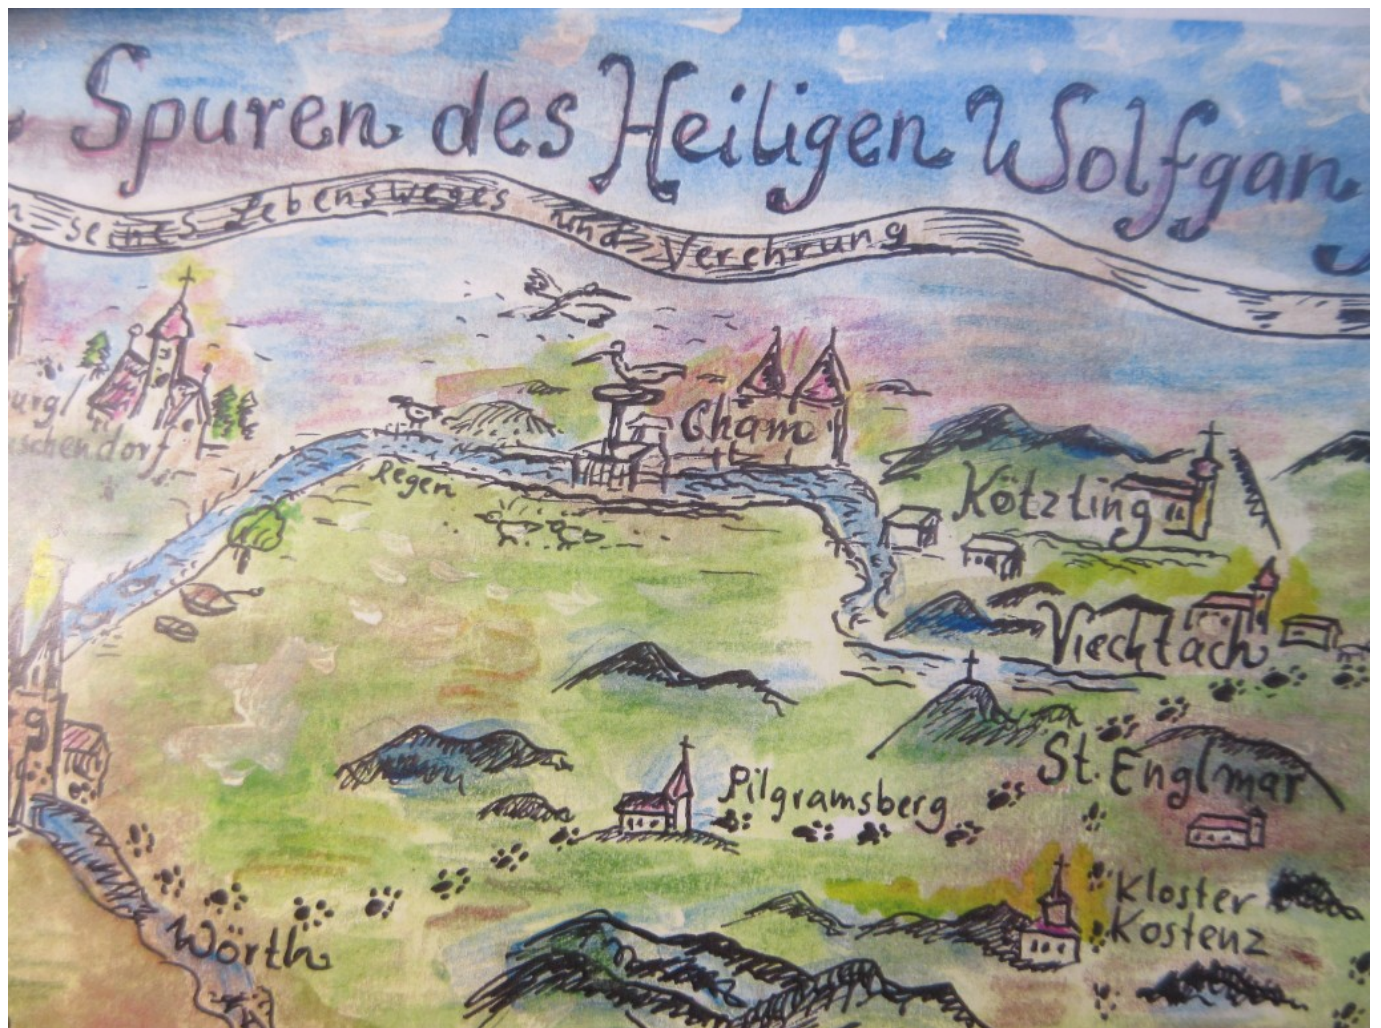 Spuren des Heiligen Wolfgan
seines Lebensweges und Verehrung
urg
schendorf
Cham
Regen
Kötzting
Viechtach
g
St. Englmar
Pilgramsberg
Kloster
Kostenz
Wörth